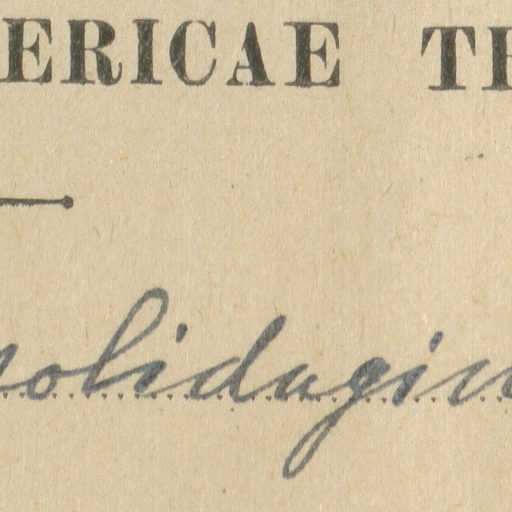 ERICAE TR
solidagin